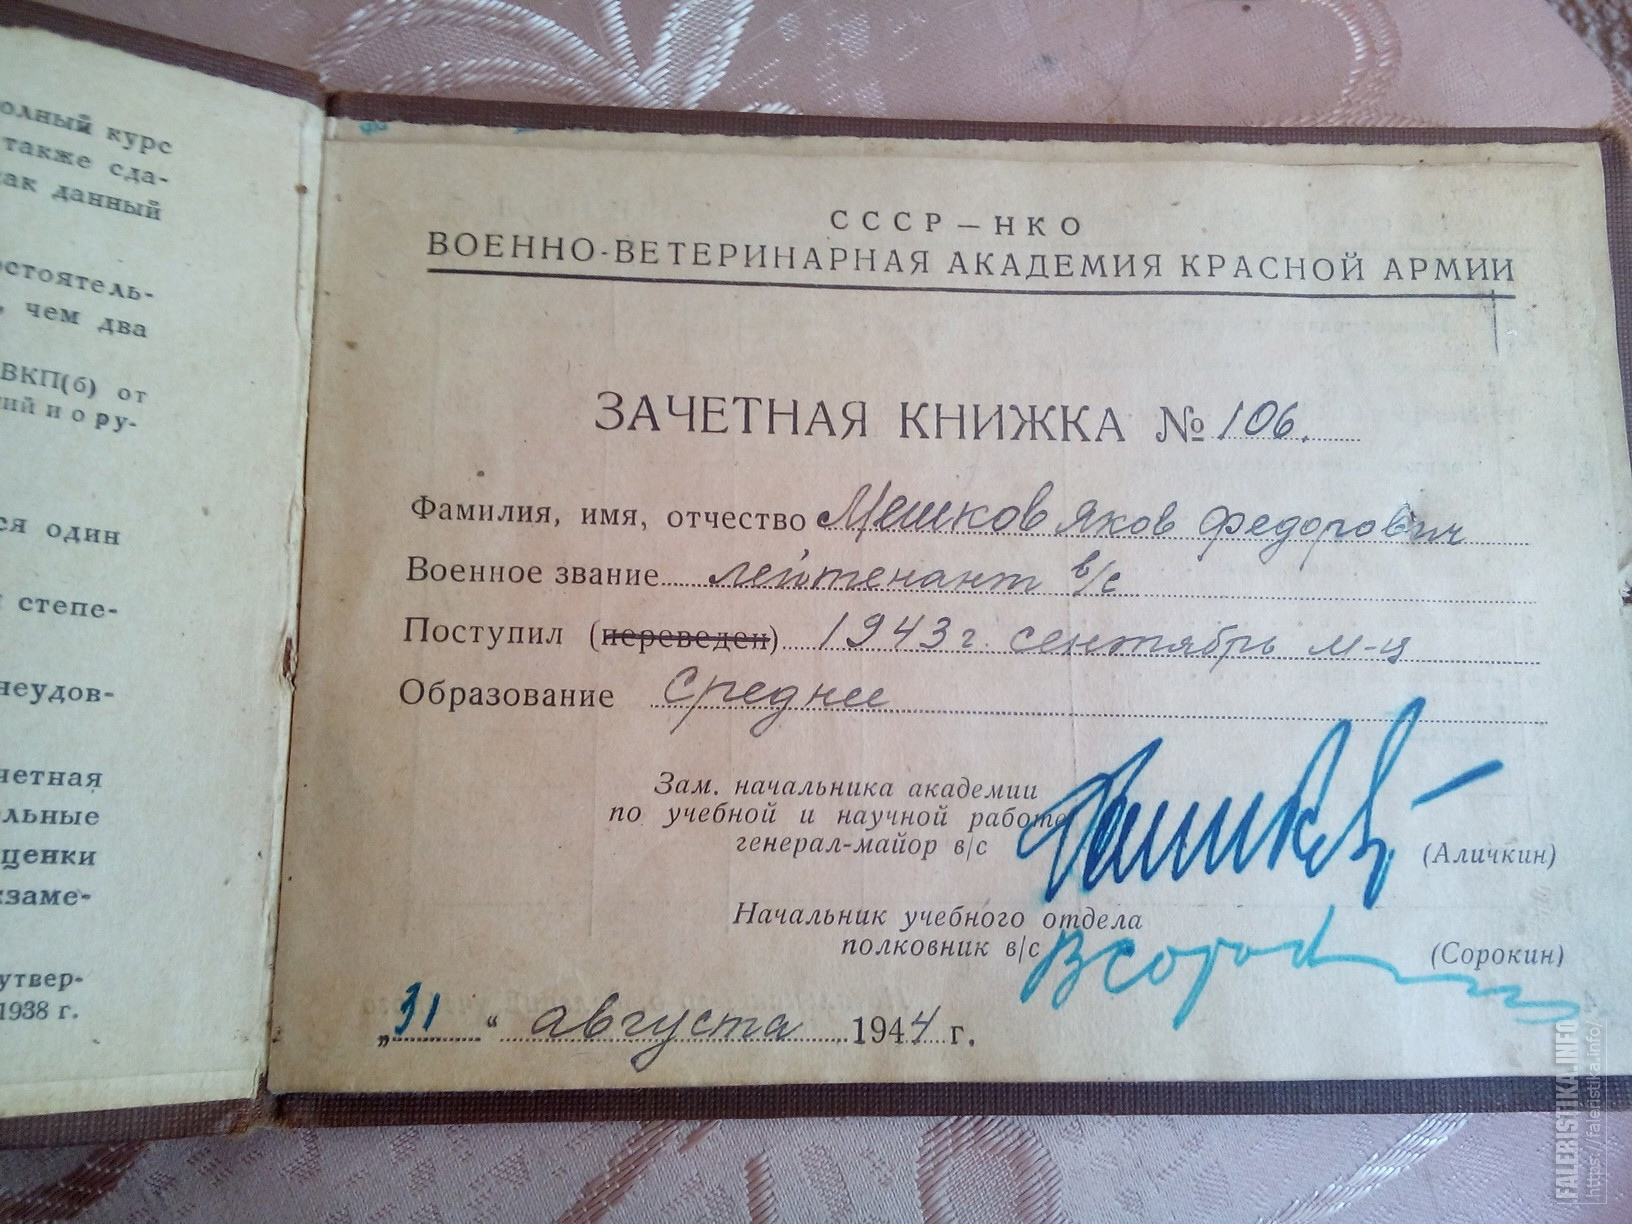 олный курс
также сда-
как данный
остоятель-
, чем два
ВКП(б) от
ний и о ру-
ся один
степе-
неудов-
четная
ельные
оценки
кзаме-
утвер-
1938 г.
СССР — НКО
ВОЕННО-ВЕТЕРИНАРНАЯ АКАДЕМИЯ КРАСНОЙ АРМИИ
ЗАЧЕТНАЯ КНИЖКА № 106.
Фамилия, имя, отчество Мешков Яков Федорович
Военное звание лейтенант в/с
Поступил (переведен) 1943 г. сентябрь м-ц
Образование Среднее
Зам. начальника академии
по учебной и научной работе
генерал-майор в/с (Аличкин)
Начальник учебного отдела
полковник в/с (Сорокин)
„31“ августа 1944 г.
FALERISTIKA.INFO
https://faleristika.info/